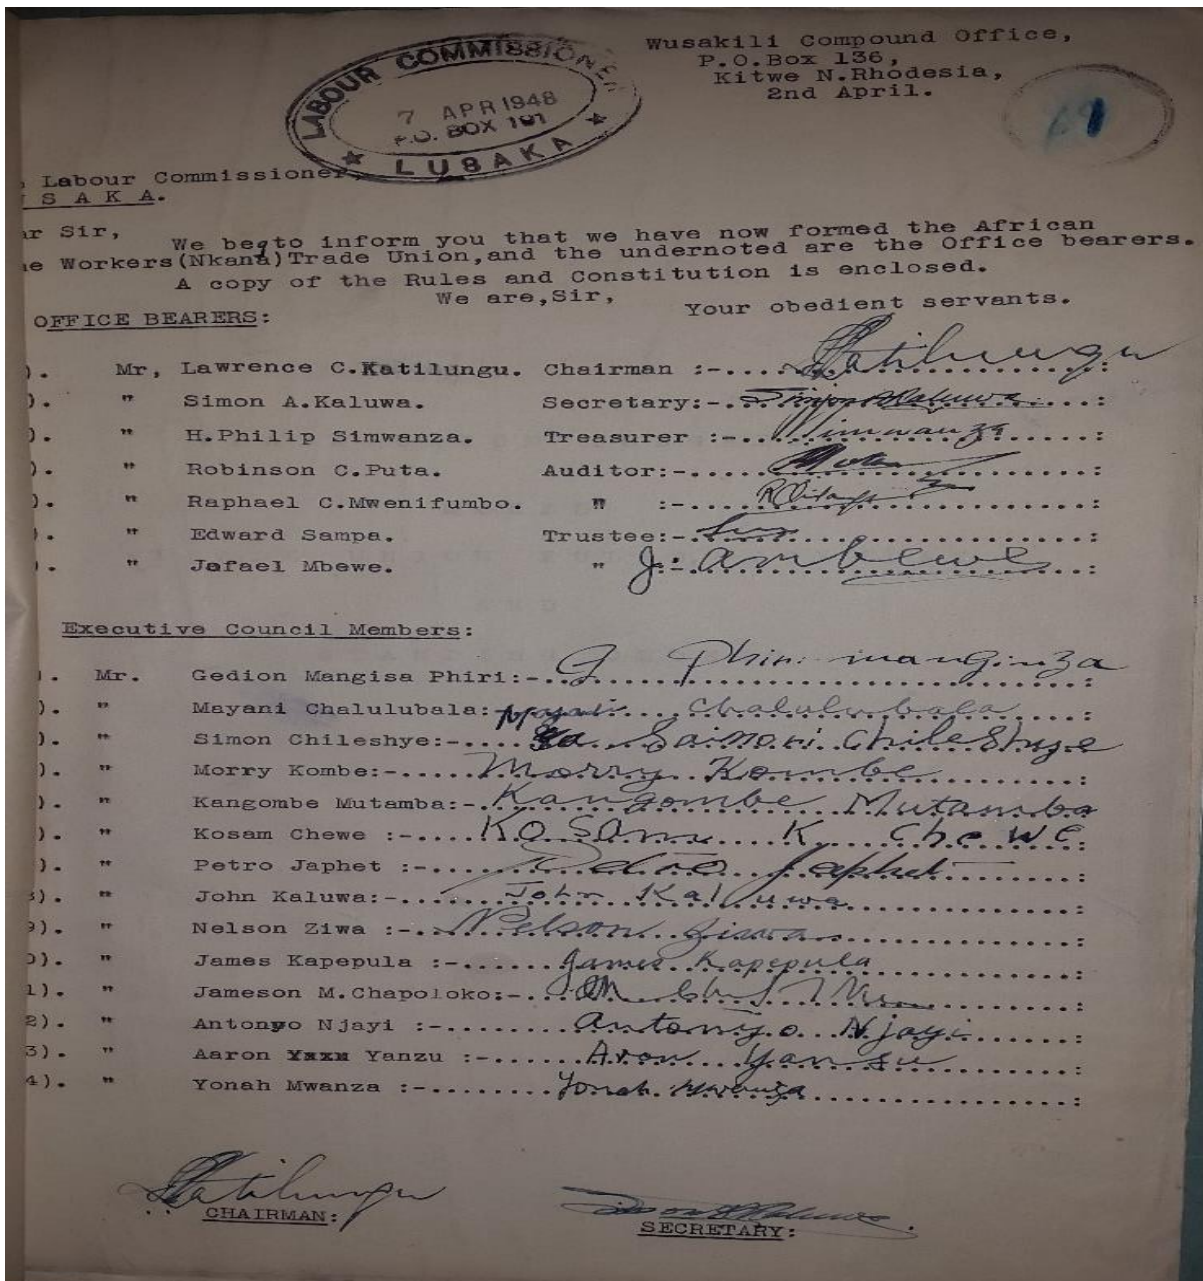 Wusakili Compound Office,
P.O.Box 136,
Kitwe N.Rhodesia,
2nd April.
LABOUR COMMISSIONER
7 APR 1948
P.O. BOX 191
★ LUSAKA ★
69
Labour Commissioner,
S A K A.
r Sir,
We beg to inform you that we have now formed the African
e Workers(Nkana)Trade Union,and the undernoted are the Office bearers.
A copy of the Rules and Constitution is enclosed.
We are,Sir,
Your obedient servants.
OFFICE BEARERS:
). Mr, Lawrence C.Katilungu. Chairman :-.... Katilungu
). " Simon A.Kaluwa. Secretary:-.. Simon A Kaluwa....:
). " H.Philip Simwanza. Treasurer :-... Simwanza......:
). " Robinson C.Puta. Auditor:-....
). " Raphael C.Mwenifumbo. " :-....
). " Edward Sampa. Trustee:-
). " Jafael Mbewe. " J. Ambewe
Executive Council Members:
). Mr. Gedion Mangisa Phiri:-.. G Phiri manginza
). " Mayani Chalulubala: Mayani.... Chalulubala....:
). " Simon Chileshye:-.... Saimoni Chileshye
). " Morry Kombe:-..... Morry Kombe.........:
). " Kangombe Mutamba:- Kangombe Mutamba
). " Kosam Chewe :-.... KOSAM K. CheWE.
). " Petro Japhet :-.... Petro Japhet........:
). " John Kaluwa:-....... John Kaluwa..............:
9). " Nelson Ziwa :-.. Nelson Ziwa...............:
0). " James Kapepula :-...... James Kapepula
1). " Jameson M.Chapoloko:-..
2). " Antonyo Njayi :-....... Antonyo Njayi.......:
3). " Aaron Yanzu :-...... Aron Yansu.........:
4). " Yonah Mwanza :-........ Yonah Mwanza ..............:
Katilungu
CHAIRMAN:
Simon A Kaluwa.
SECRETARY: